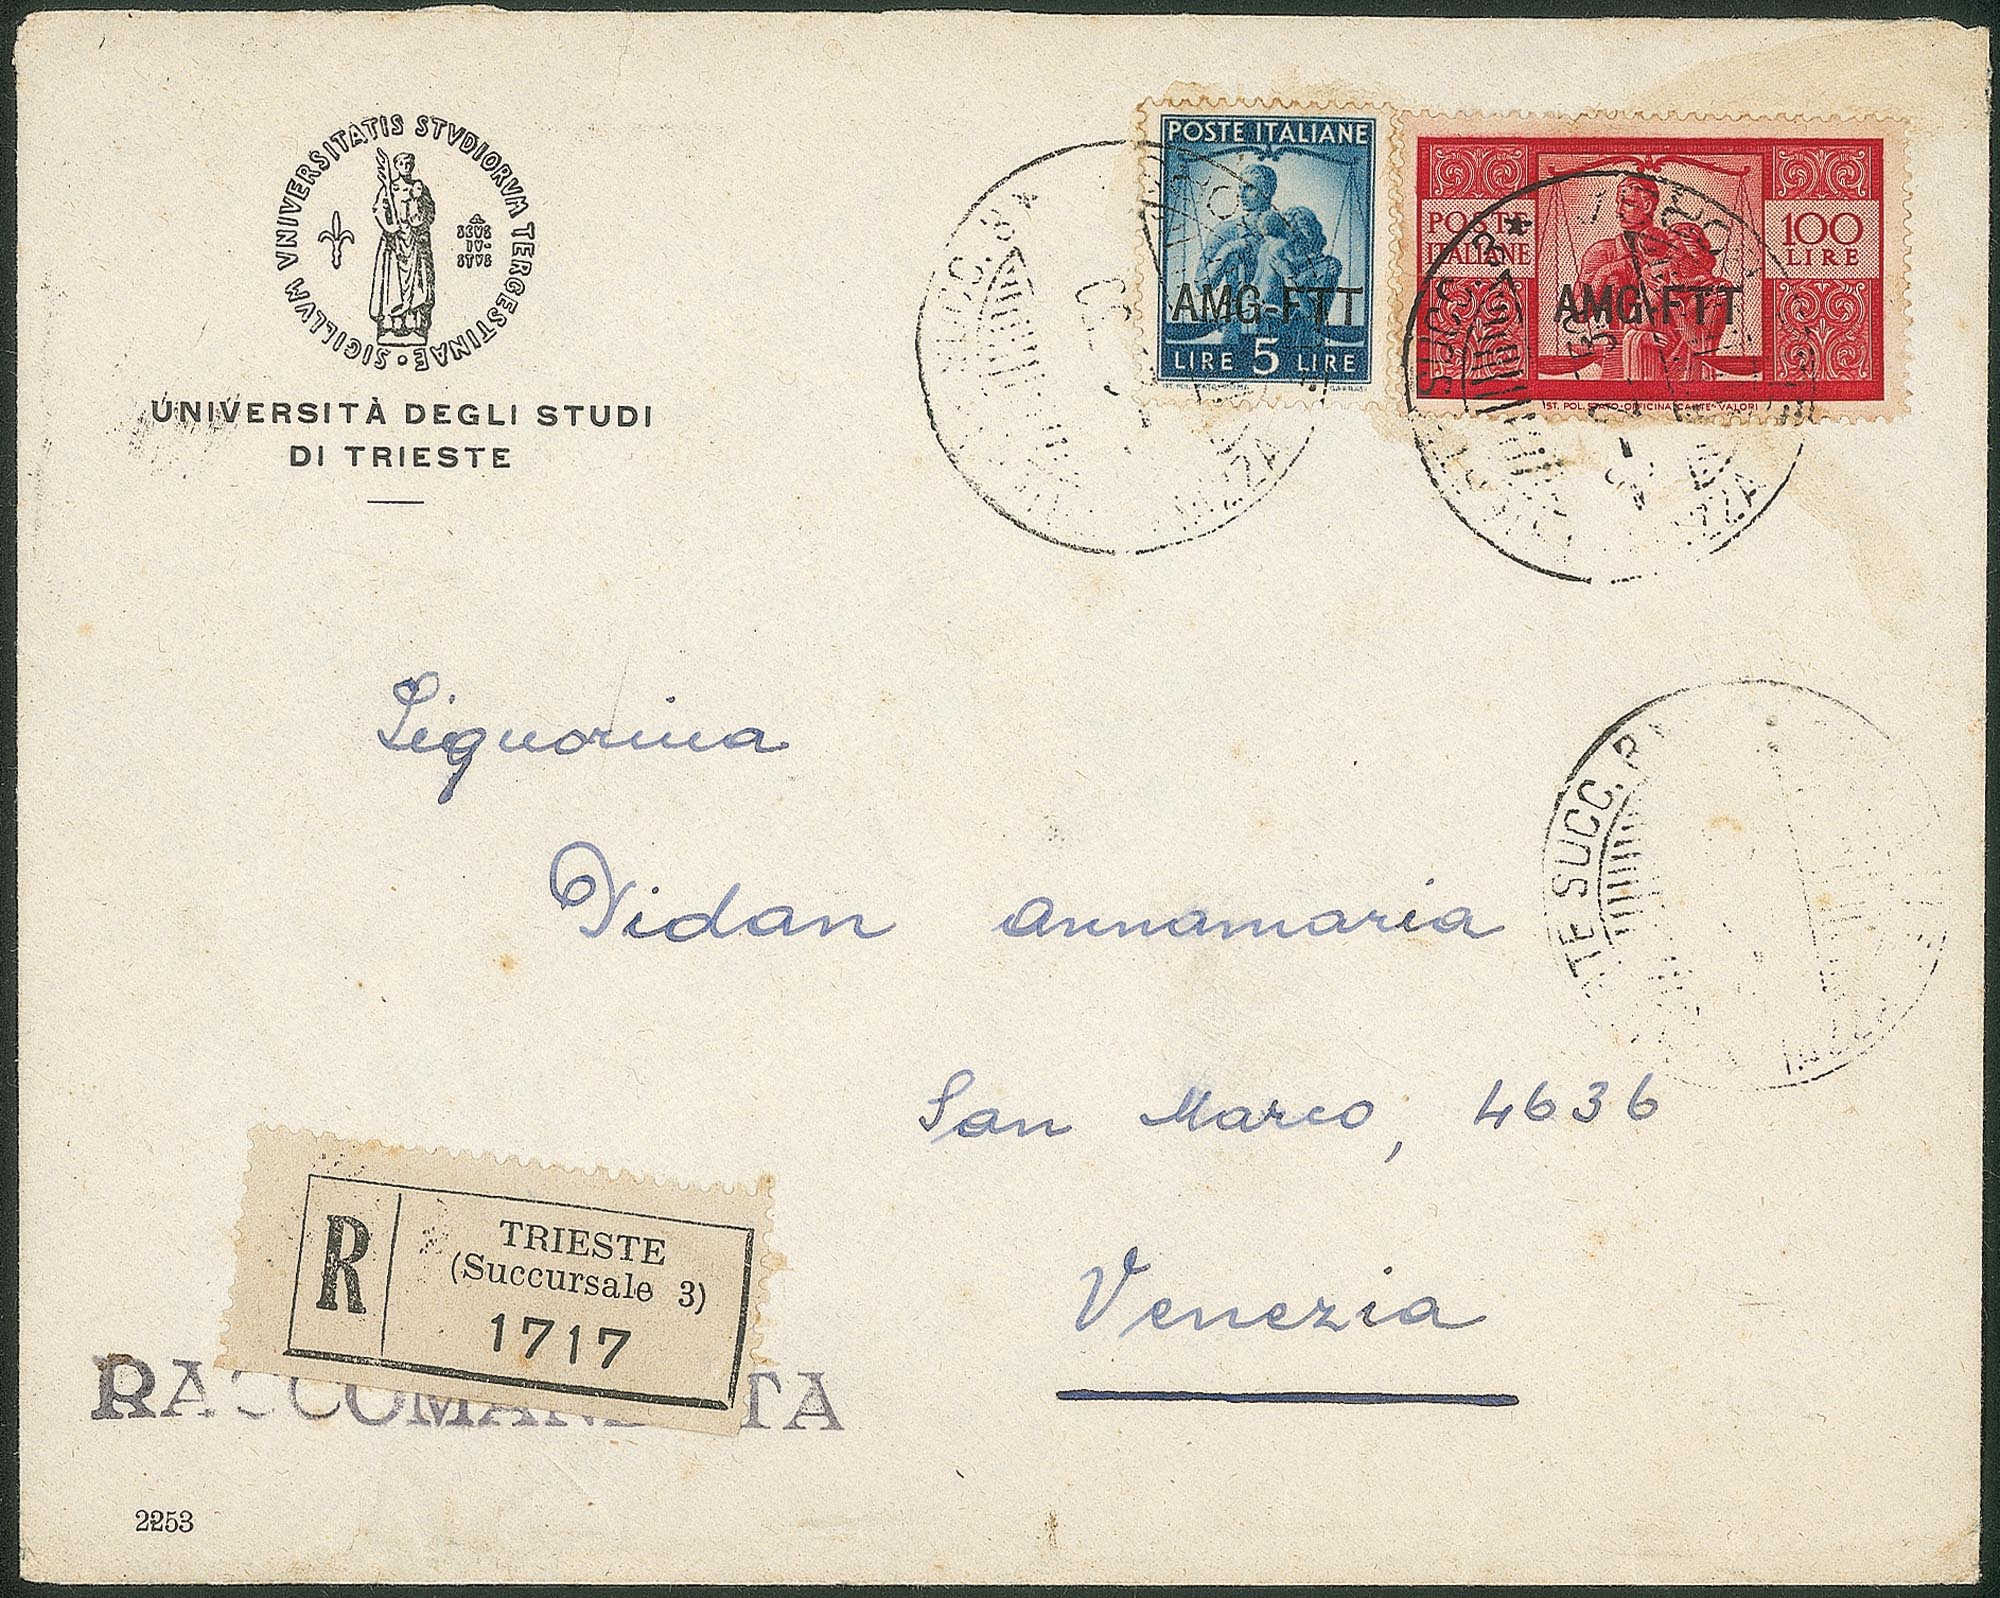 SIGILLVM VNIVERSITATIS STVDIORVM TERGESTINAE
SCVS
IV-
STVS
UNIVERSITÀ DEGLI STUDI
DI TRIESTE
POSTE ITALIANE
AMG-FTT
LIRE 5 LIRE
POSTE
ITALIANE
100
LIRE
AMG-FTT
IST. POL. STATO-OFFICINA CARTE-VALORI
SUCC. 3
TE SUCC.
Signorina
Vidan Annamaria
San Marco, 4636
Venezia
R
TRIESTE
(Succursale 3)
1717
RACCOMANDATA
2253